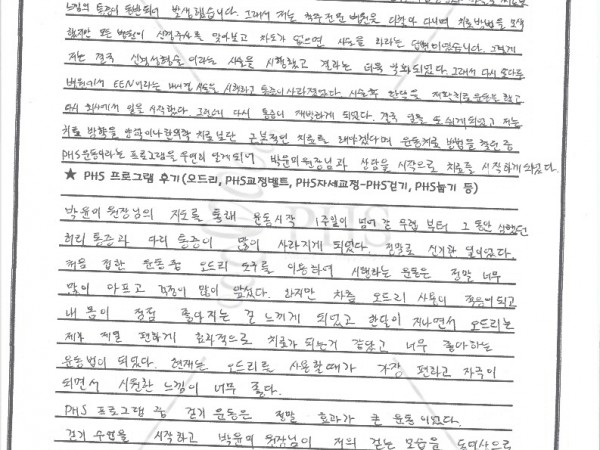 느낌의 통증이 동반되어 발생했습니다. 그래서 저는 척추 전문 병원을 다녀 치료방법을 모색
했지만 모든 병원이 신경주사를 맞아보고 차도가 없으면 시술을 하라는 답변이었습니다. 그렇게
저는 결국 신경성형술이라는 시술을 시행했고 결과는 더욱 악화되었다. 그래서 다시
병원에서 EEN이라는 내시경 시술을 시행하고 통증이 사라졌었다. 시술후 한달을 재활치료 운동을 하고
다시 회사에서 일을 시작했다. 그러던 다시 통증이 재발하게 되었다. 결국 일을 또 쉬게되었고 저는
치료 방향을 양의학이나 한의학 치료보단 근본적인 치료를 해야겠다며 운동치료 방법을 찾던 중
PHS운동이라는 프로그램을 우연히 알게되어 박윤미원장님과 상담을 시작으로 치료를 시작하게 되었다.
★ PHS 프로그램 후기(오드리, PHS교정벨트, PHS자세교정-PHS걷기, PHS눕기 등)
박윤미 원장님의 지도를 통해 운동시작 1주일이 넘어 갈 무렵 부터 그 동안 심했던
허리 통증과 다리 통증이 많이 사라지게 되었다. 정말로 신기한 일이었다.
처음 접한 운동 중 오드리 도구를 이용하여 시행하는 운동은 정말 너무
많이 아프고 걱정이 많이 앞섰다. 하지만 차츰 오드리 사용이 적응이되고
내 몸이 점점 좋아지는 걸 느끼게 되었고 한달이 지나면서 오드리는
제가 제일 편하게 효과적으로 치료가 되는거 같았고 너무 좋아하는
운동법이 되었다. 현재는 오드리를 사용할때가 가장 편하고 자극이
되면서 시원한 느낌이 너무 좋다.
PHS 프로그램 중 걷기 운동은 정말 효과가 큰 운동이었다.
걷기 수업을 시작하고 박윤미 원장님이 저의 걷는 모습을 동영상으로